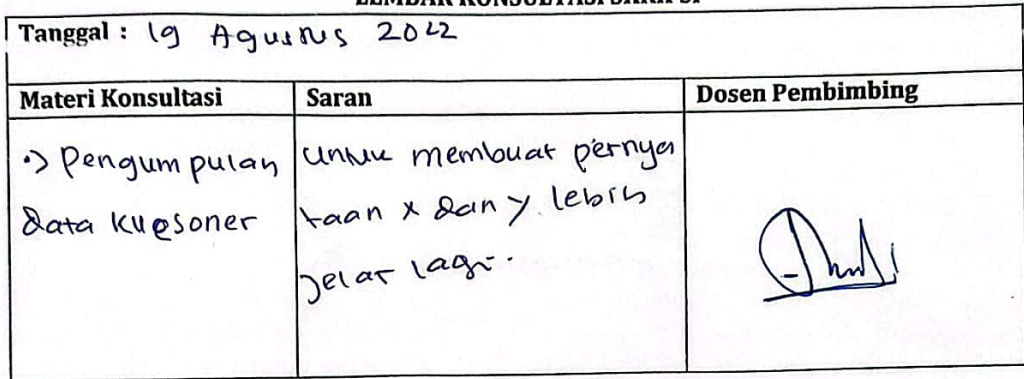 Tanggal : 19 Agustus 2022
Materi Konsultasi
Saran
Dosen Pembimbing
Pengumpulan
data kuesoner
untuk membuat pernya
taan x dan y lebih
jelas lagi.